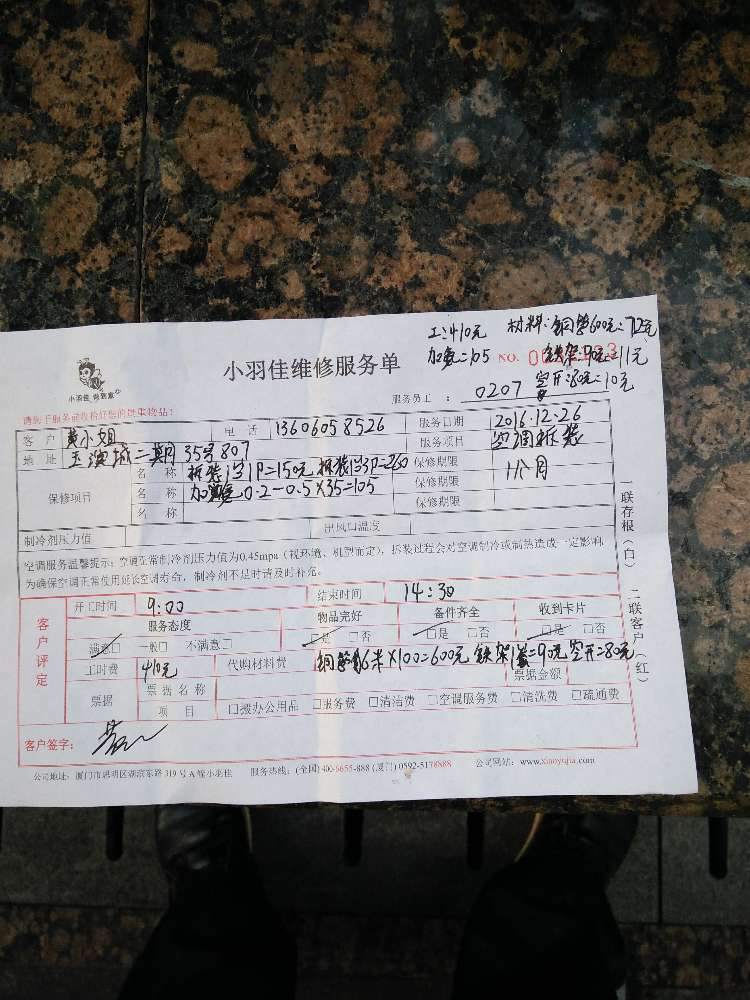 工:410元 材料:铜管600元=72元
加氟=105 NO. 铁架:90元=11元
小羽佳维修服务单
小羽佳 做到家
服务员工: 0207 空开:80元=10元
请您于服务前收拾好您的贵重物品!
客户 黄小姐 电话 13606058526 服务日期 2016.12.26
地址 二期 35号807 服务项目 空调拆装
保修项目
名称 拆装空1P=150元 拆装空3P=260 保修期限 1个月
名称 加氟0.2-0.5×35=105 保修期限
名称 保修期限
制冷剂压力值 出风口温度
空调服务温馨提示:空调正常制冷剂压力值为0.45mpa(视环境、机型而定),拆装过程会对空调制冷或制热造成一定影响,
为确保空调正常使用延长空调寿命,制冷剂不足时请及时补充。
一联存根(白) 二联客户(红)
客户评定
开工时间 9:00 结束时间 14:30
服务态度 物品完好 备件齐全 收到卡片
满意□ 一般□ 不满意□ □是 □否 □是 □否 □是 □否
工时费 410元 代购材料费 铜管6米×100=600元 铁架1套=90元 空开=80元
票据 票据名称 票据金额
项目 □搬办公用品 □服务费 □清洁费 □空调服务费 □清洗费 □疏通费
客户签字:
公司地址:厦门市思明区湖滨东路319号A幢小羽佳 服务热线:(全国)400-6655-888 (厦门)0592-5178888 公司网站:www.xiaoyujia.com